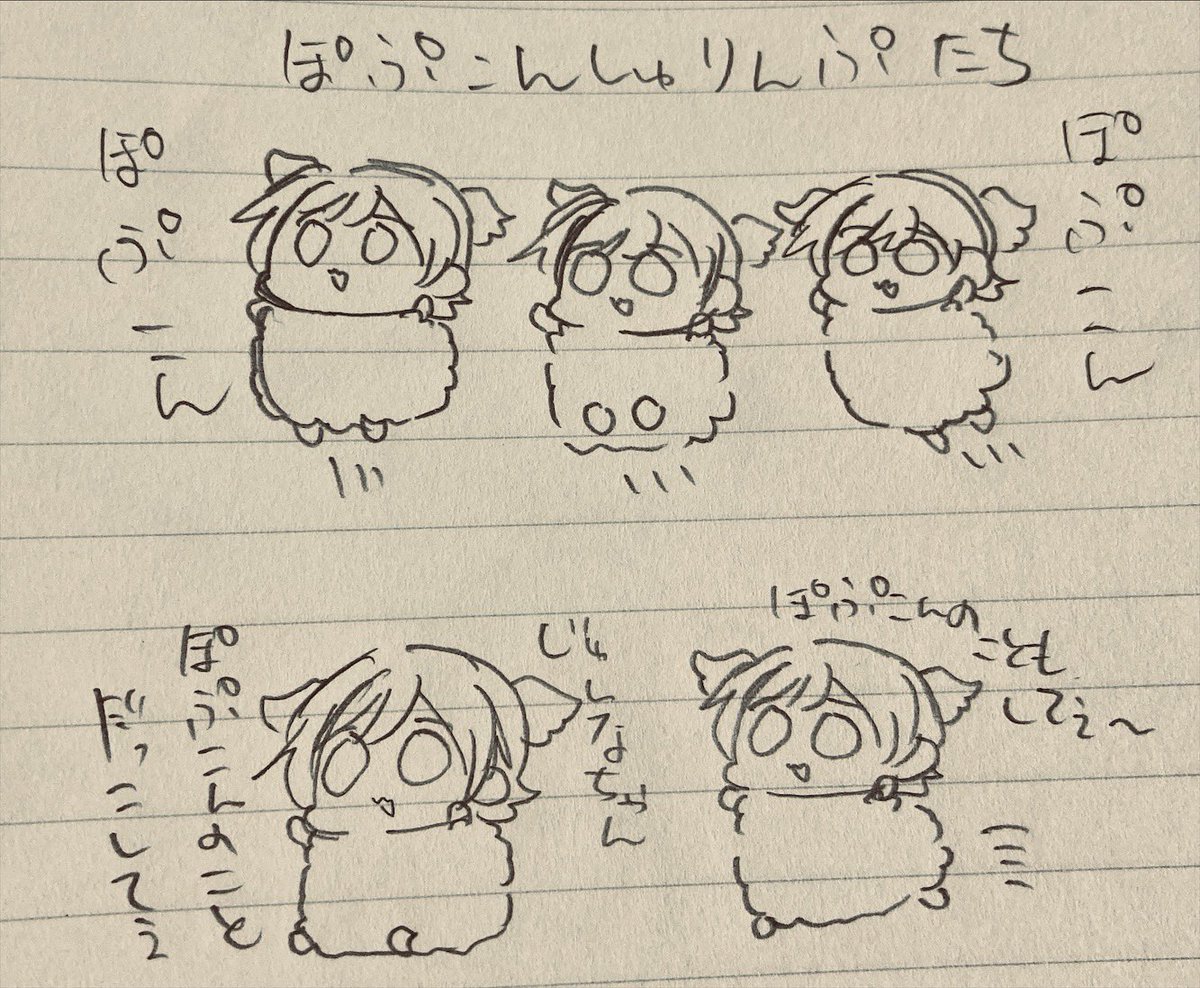 ぽぷこんしゅりんぷたち
ぽぷこん
ぽぷこん
ぽぷこんのこと
だっこしてえ
ぽぷこんの
ことも
してえ～